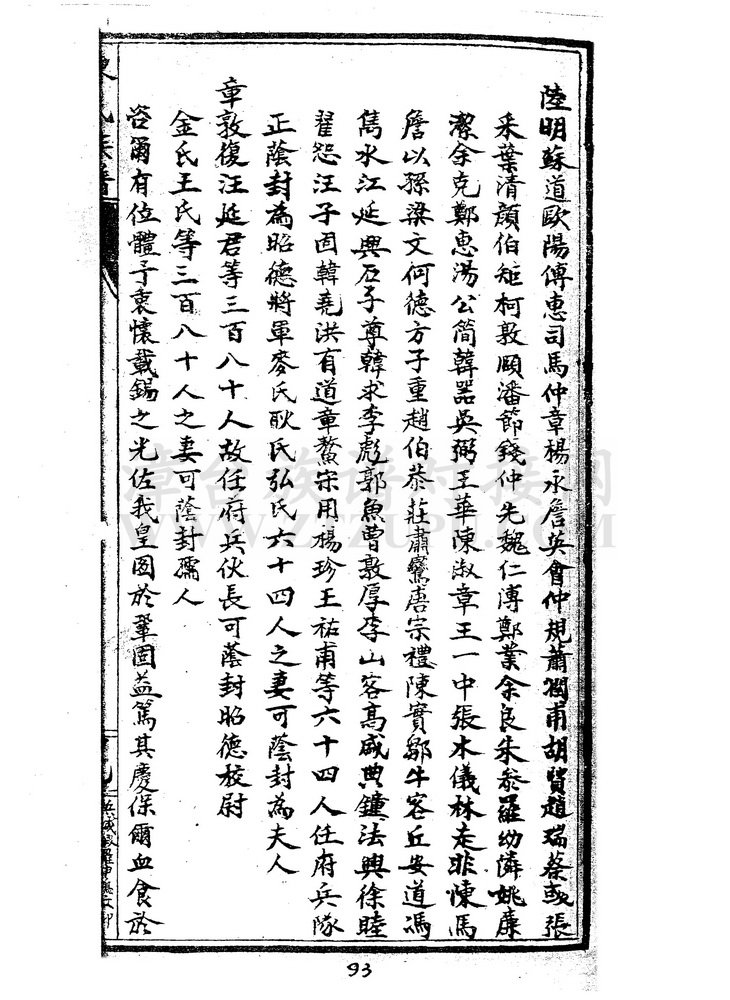 陸明蘇道歐陽傅惠司馬仲章楊永詹英會仲規蕭潤甫胡賢趙瑞蔡彧張
釆葉清顏伯矩柯敦頤潘節錢仲先魏仁溥鄭業余良朱參羅幼憐姚廉
潔余克鄭惠湯公簡韓器吳弼王華陳淑章王一中張木儀林走非陳馬
詹以孫梁文何德方子重趙伯恭莊肅鸞唐宗禮陳實鄒牛容丘安道馮
雋水江延興石子尊韓求李彪郭魚曹敦厚李山客高咸典鐘法興徐睦
翟恕汪子固韓堯洪有道章鰲宋用楊珍王祐甫等六十四人任府兵隊
正蔭封為昭德將軍麥氏耿氏弘氏六十四人之妻可蔭封為夫人
章敦復汪延君等三百八十人故任府兵伙長可蔭封昭德校尉
金氏王氏等三百八十人之妻可蔭封孺人
咨爾有位體予衷懷載錫之光佐我皇圖於鞏固益篤其慶保爾血食於
氏族譜
漳台族谱对接网
WWW.ZTZUPU.COM
93